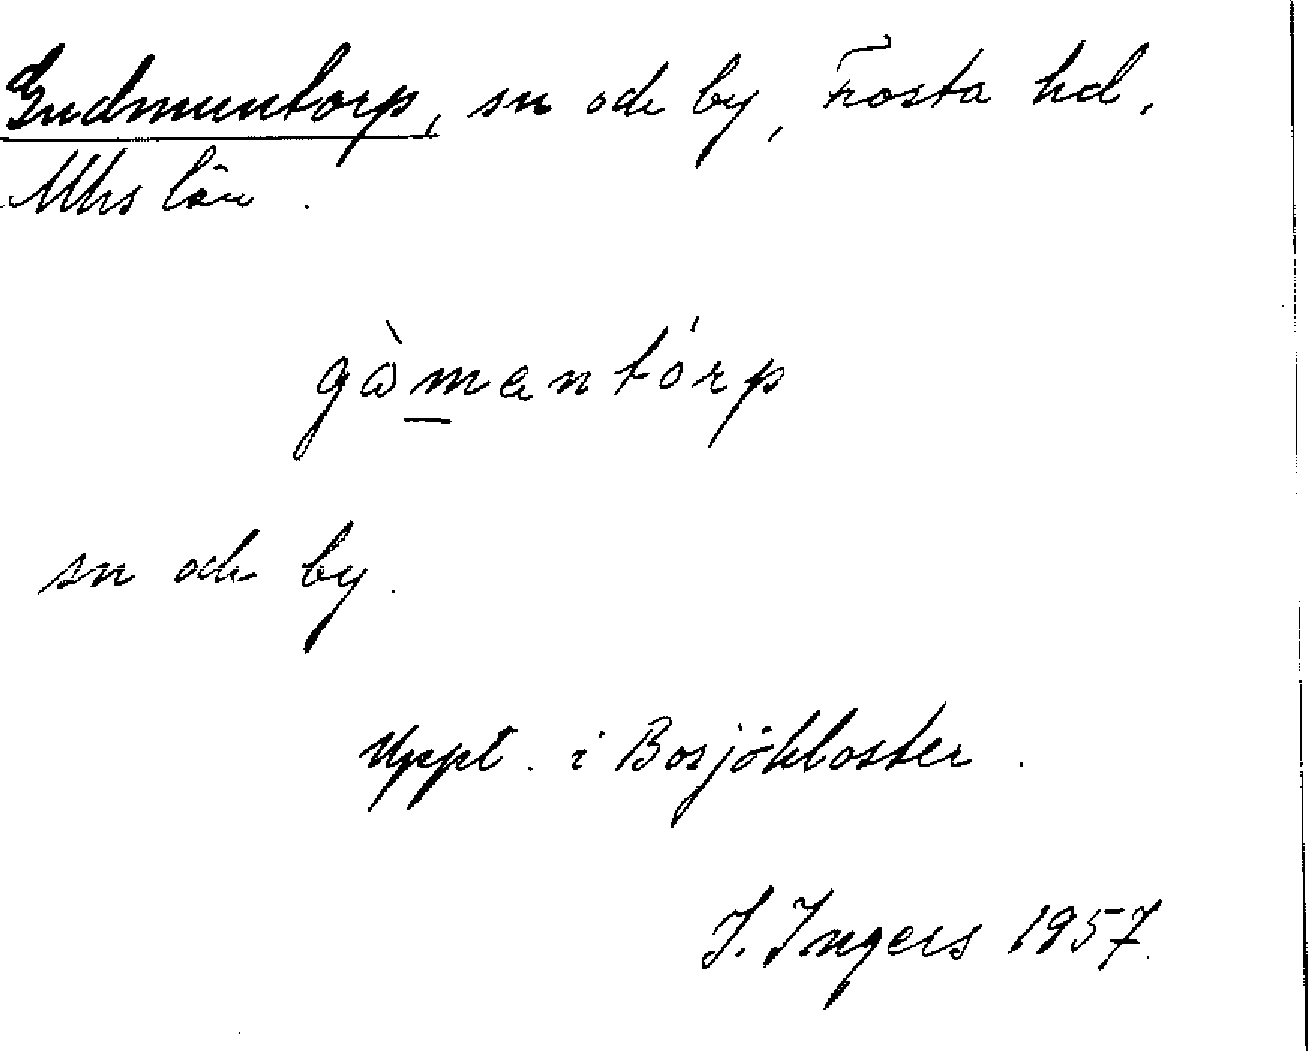 Gudmuntorp, sn och by, Frosta hd.
Mhs län.
gòmantórp
sn och by.
Uppt. i Bosjökloster.
I. Ingers 1957.